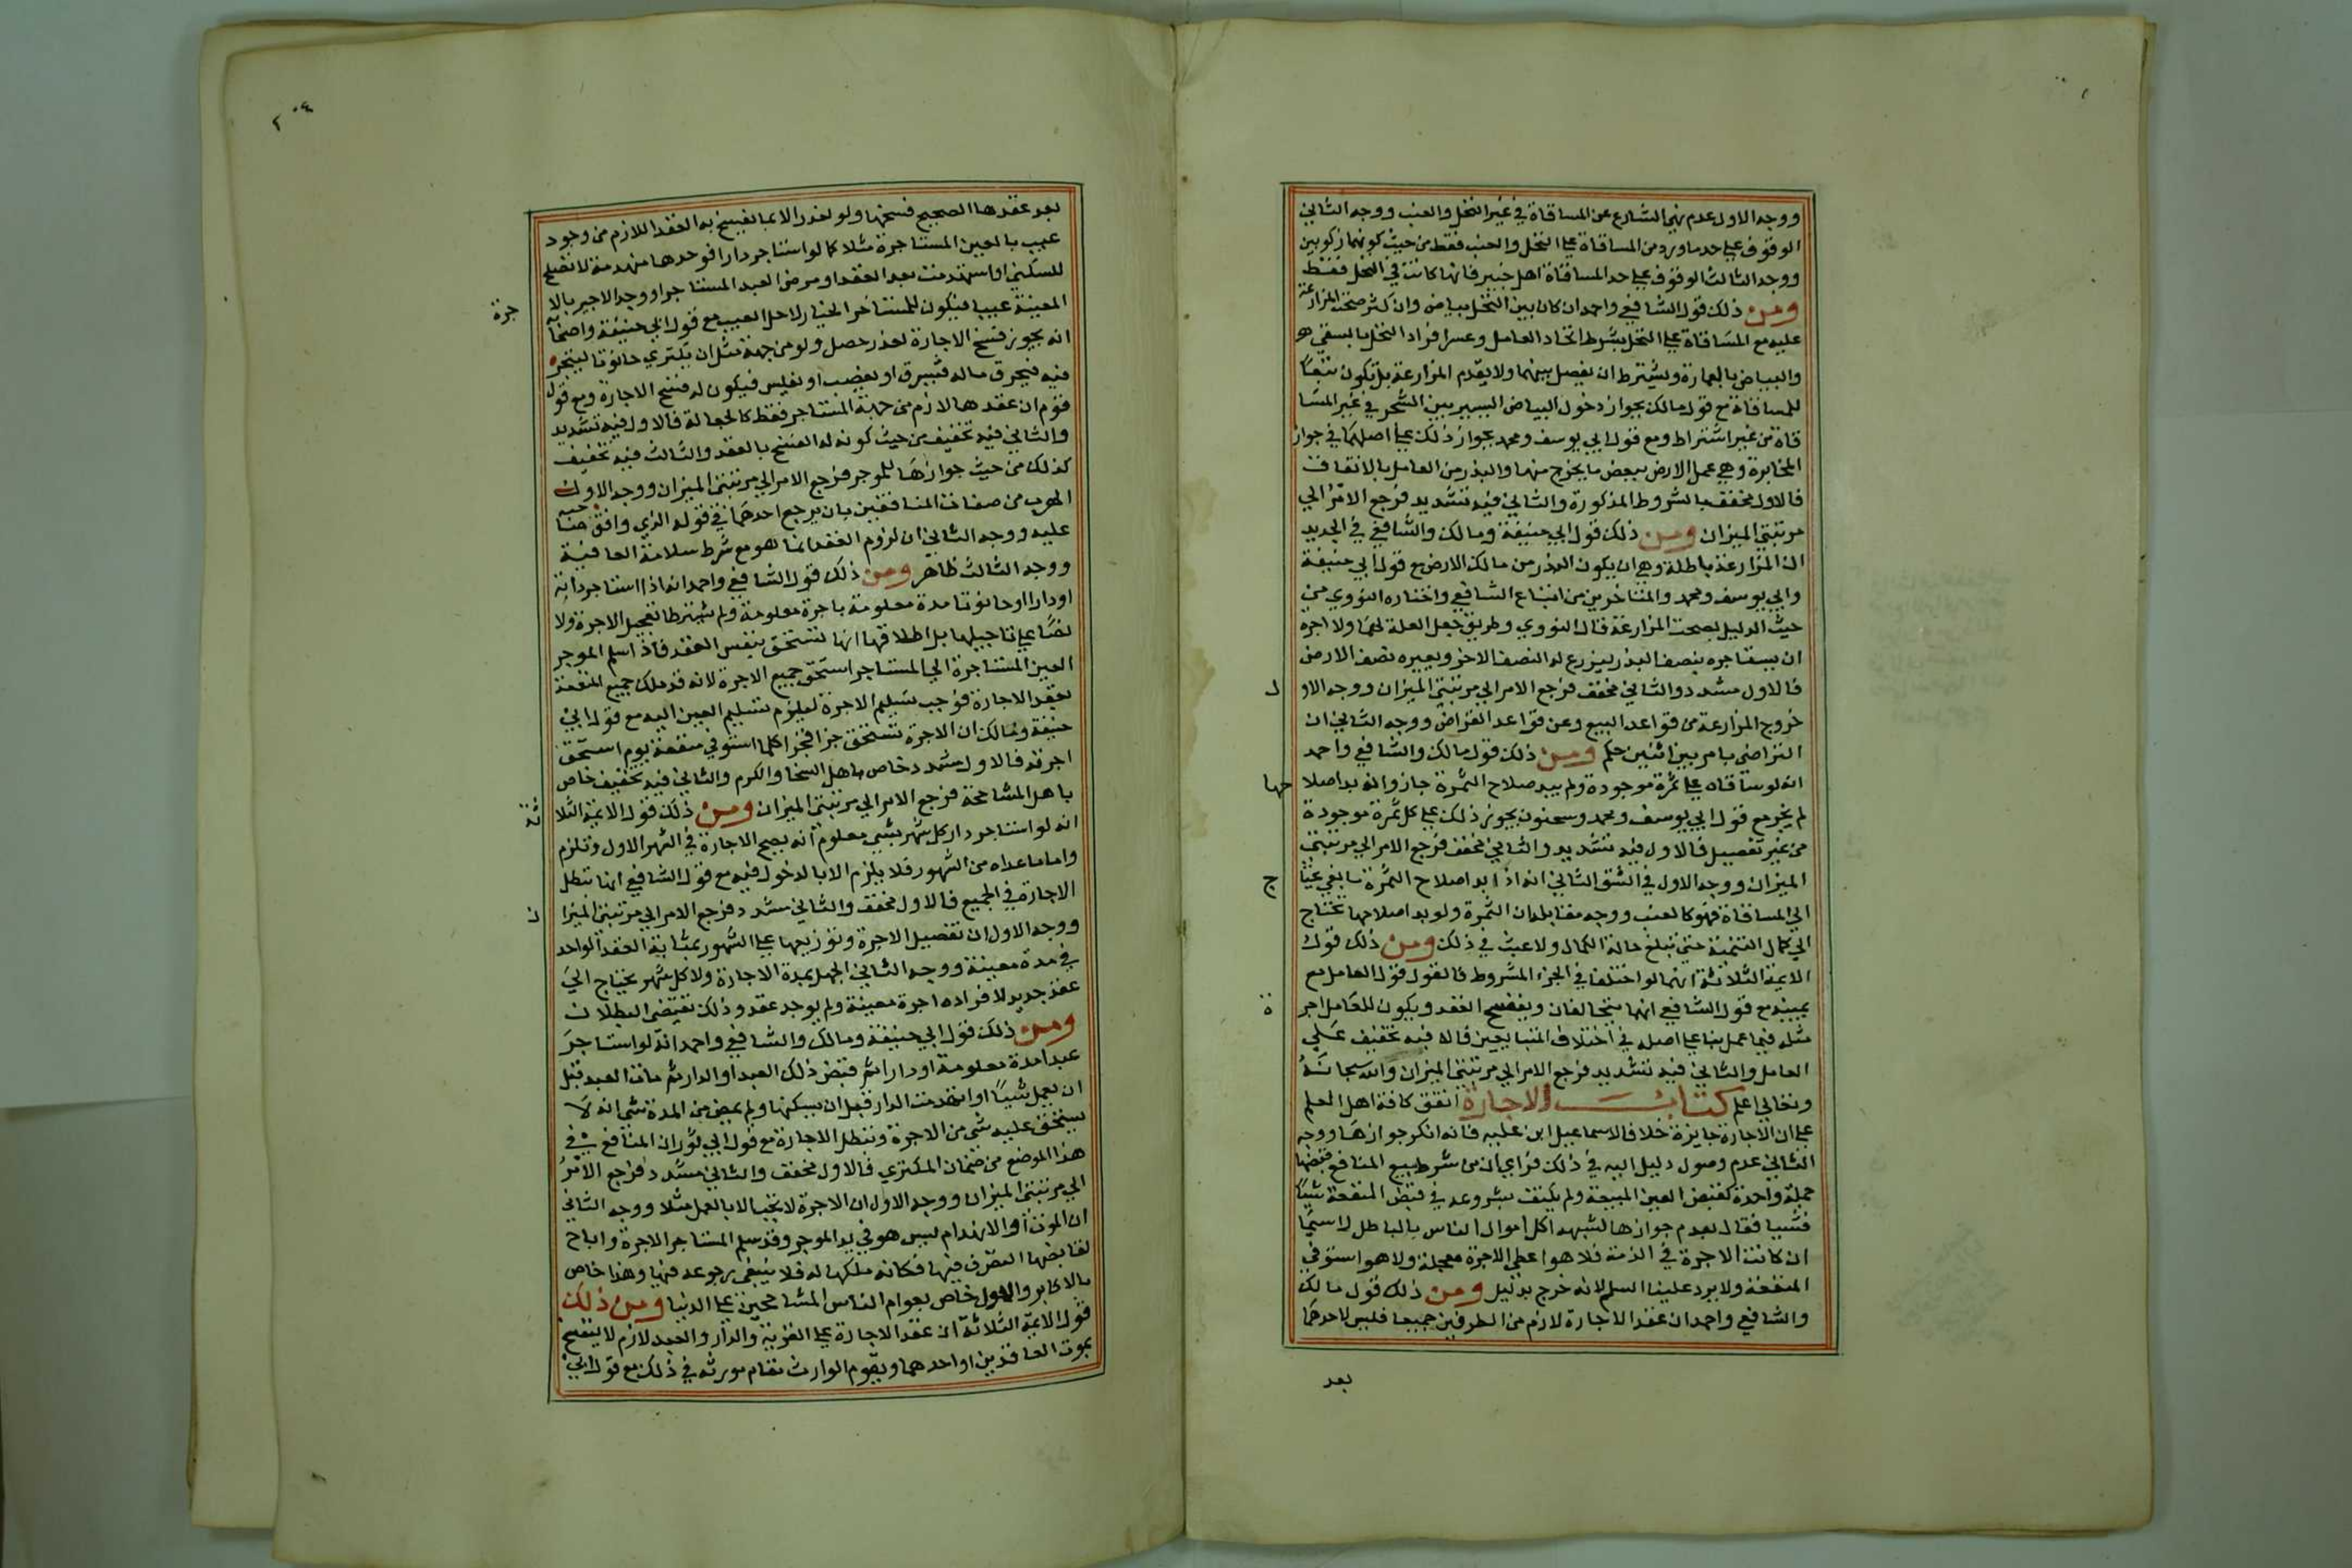 ووجه الاول عدم نهي الشارع عن المساقاة في غير النخل والعنب ووجه الثاني
الوقوف علي حد ما ورد من المساقاة علي النخل والعنب فقط من حيث كونهما زكويين
ووجه الثالث الوقوف علي حد المساقاة اهل خيبر فانها كانت في النخل فقط
ومن ذلك قول الشافعي واحمد ان كان بين النخل بياض وان كثر صحت المزارعة
عليه مع المساقاة علي النخل بشرط اتحاد العامل وعسر افراد النخل بالسقي
والبياض بالعمارة ويشترط ان يفصل بينهما ولا يقدم المزارعة بل تكون تبعًا
للمساقاة مع قول مالك بجواز دخول البياض اليسير بين الشجر في غير المسا
قاة من غير اشتراط ومع قول ابي يوسف ومحمد بجواز ذلك علي اصلهما في جواز
المخابرة وهي عمل الارض ببعض ما يخرج منها والبذر من العامل بالاتفاق
فالاول مخفف بالشروط المذكورة والثاني فيه تشديد فرجع الامر الي
مرتبتي الميزان ومن ذلك قول ابي حنيفة ومالك والشافعي في الجديد
ان المزارعة باطلة وهي ان يكون البذر من مالك الارض مع قول ابي حنيفة
وابي يوسف ومحمد والمتاخرين من اتباع الشافعي واختاره النووي من
حيث الدليل بصحت المزارعة قال النووي وطريق جعل الغلة لهما ولا اجره
ان يستاجره بنصف البذر ليزرع له النصف الاخر ويعيره نصف الارض
فالاول مشدد والثاني مخفف فرجع الامر الي مرتبتي الميزان ووجه الاو ل
خروج المزارعة من قواعد البيع وعن قواعد القراض ووجه الثاني ان
التراضي بامر بين اثنين حكم ومن ذلك قول مالك والشافعي واحمد
انه لو ساقاه علي ثمرة موجودة ولم يبد صلاح الثمرة جاز وانه بد اصلا حها
لم يجز مع قول ابي يوسف ومحمد وسحنون يجوز ذلك علي كل ثمرة موجودة
من غير تفصيل فالاول فيه تشديد والثاني مخفف فرجع الامر الي مرتبتي
الميزان ووجه الاول في الشق الثاني انه اذا بد اصلاح الثمرة ما بقي يحتا ج
الي المساقاة فهو كالعبث ووجه مقابله ان الثمرة ولو بد اصلاحها تحتاج
الي كمال التنمية حتي تبلغ حالة الكمال ولا عبث في ذلك ومن ذلك قول
الايمة الثلاثة انهما لو اختلفا في الجزء المشروط فالقول قول العامل مع
يمينه مع قول الشافعي انهما يتحالفان ويفسخ العقد ويكون للعامل اجر ة
مثله فيما عمل بنا علي اصله في اختلاف المتبايعين فالا فيه تخفيف علي
العامل والثاني فيه تشديد فرجع الامر الي مرتبتي الميزان والله سبحانه
وتعالي اعلم كتاب الاجارة اتفق كافة اهل العلم
علي ان الاجارة جايزة خلافا لاسماعيل ابن علية فانه انكر جوازها ووجه
الثاني عدم وصول دليل اليه في ذلك فراي ان من شرط بيع المنافع قبضها
جملة واحدة كقبض العين المبيعة ولم يكتف بشروعه في قبض المنفعة شيئا
فشيا فقال بعدم جوازها لشبهه اكل اموال الناس بالباطل لا سيما
ان كانت الاجرة في الذمة فلا هو اعطي الاجرة معجلة ولا هو استوفي
المنفعة ولا يرد علينا السلم لانه خرج بدليل ومن ذلك قول مالك
والشافعي واحمد ان عقد الاجارة لازم من الطرفين جميعا فليس لاحدهما
بعد
٢٠٤
بعد عقدها الصحيح فسخها ولو لعذر الا بما يفسخ به العقد اللازم من وجود
عيب بالعين المستاجرة مثلا كما لو استاجر دارا فوجدها منهدمة لا تصلح
للسكني او استهدمت بعد العقد او مرض العبد المستاجر او وجد الاجير بالا جرة
المعينة عيبا فيكون للمستاجر الخيار لاجل العيب مع قول ابي حنيفة واصحابه
انه يجوز فسخ الاجارة لعذر حصل ولو من جهة مثل ان يكتري حانوتا ليتجر
فيه فيحرق ماله فيسرق او يغصب او يفلس فيكون له فسخ الاجارة ومع قول
قوم ان عقدها لازم من جهة المستاجر فقط كالجعالة فالاول فيه تشديد
والثاني فيه تخفيف من حيث كونه له الفسخ بالعقد والثالث فيه تخفيف
كذلك من حيث جوازها للموجر فرجع الامر الي مرتبتي الميزان ووجه الاول
الهرب من صفات المنافقين بان يرجع احدهما في قوله الذي وافق صاحبه
عليه ووجه الثاني ان لزوم العقد انما هو مع شرط سلامة العاقبة
ووجه الثالث ظاهر ومن ذلك قول الشافعي واحمد انه اذا استاجر دابة
او دارا او حانوتا مدة معلومة باجرة معلومة ولم يشترطا تعجيل الاجرة ولا
نصا علي تاجيلها بل اطلاقها انها تستحق بنفس العقد فاذا سلم الموجر
العين المستاجرة الي المستاجر استحق جميع الاجرة لانه قد ملك جميع المنفعة
بعقد الاجارة فوجب تسليم الاجرة ليلزم تسليم العين اليه مع قول ابي
حنيفة ومالك ان الاجرة تستحق جزا فجزا كلما استوفي منفعة يوم استحق
اجرته فالاول مشدد خاص باهل السخا والكرم والثاني فيه تخفيف خاص
باهل المشاححة فرجع الامر الي مرتبتي الميزان ومن ذلك قول الايمة الثلا ثة
انه لو استاجر دار كل شهر بشي معلوم انه يصح الاجارة في الشهر الاول وتلزم
واما ما عداه من الشهور فلا يلزم الا بالدخول فيه مع قول الشافعي انها تبطل
الاجارة في الجميع فالاول مخفف والثاني مشدد فرجع الامر الي مرتبتي الميزا ن
ووجه الاول ان تفصيل الاجرة وتوزيعها علي الشهور بمثابة العقد الواحد
في مدة معينة ووجه الثاني الجهل بمدة الاجارة ولا كل شهر يحتاج الي
عقد جديد لافراده اجرة معينة ولم يوجد عقد وذلك يقتضي البطلان
ومن ذلك قول ابي حنيفة ومالك والشافعي واحمد انه لو استاجر
عبدا مدة معلومة او دارا ثم قبض ذلك العبد او الدار ثم مات العبد قبل
ان يعمل شيئًا او انهدمت الدار قبل ان يسكنها ولم يمض من المدة شي انه لا
يستحق عليه شي من الاجرة وتبطل الاجارة مع قول ابي ثور ان المنافع في
هذا الموضع من ضمان المكتري فالاول مخفف والثاني مشدد فرجع الامر
الي مرتبتي الميزان ووجه الاول ان الاجرة لا تجب الا بالعمل مثلا ووجه الثاني
ان الموت او الانهدام ليس هو في يد الموجر وقد سلم المستاجر الاجرة واباح
لقابضها التصرف فيها فكانه ملكها له فلا ينبغي رجوعه فيها وهذا خاص
بالاكابر والاول خاص بعوام الناس المشاححين علي الدنيا ومن ذلك
قول الايمة الثلاثة ان عقد الاجارة علي القرية والدار والعبد لازم لا ينفسخ
بموت العاقدين او احدهما ويقوم الوارث مقام مورثه في ذلك مع قول ابي